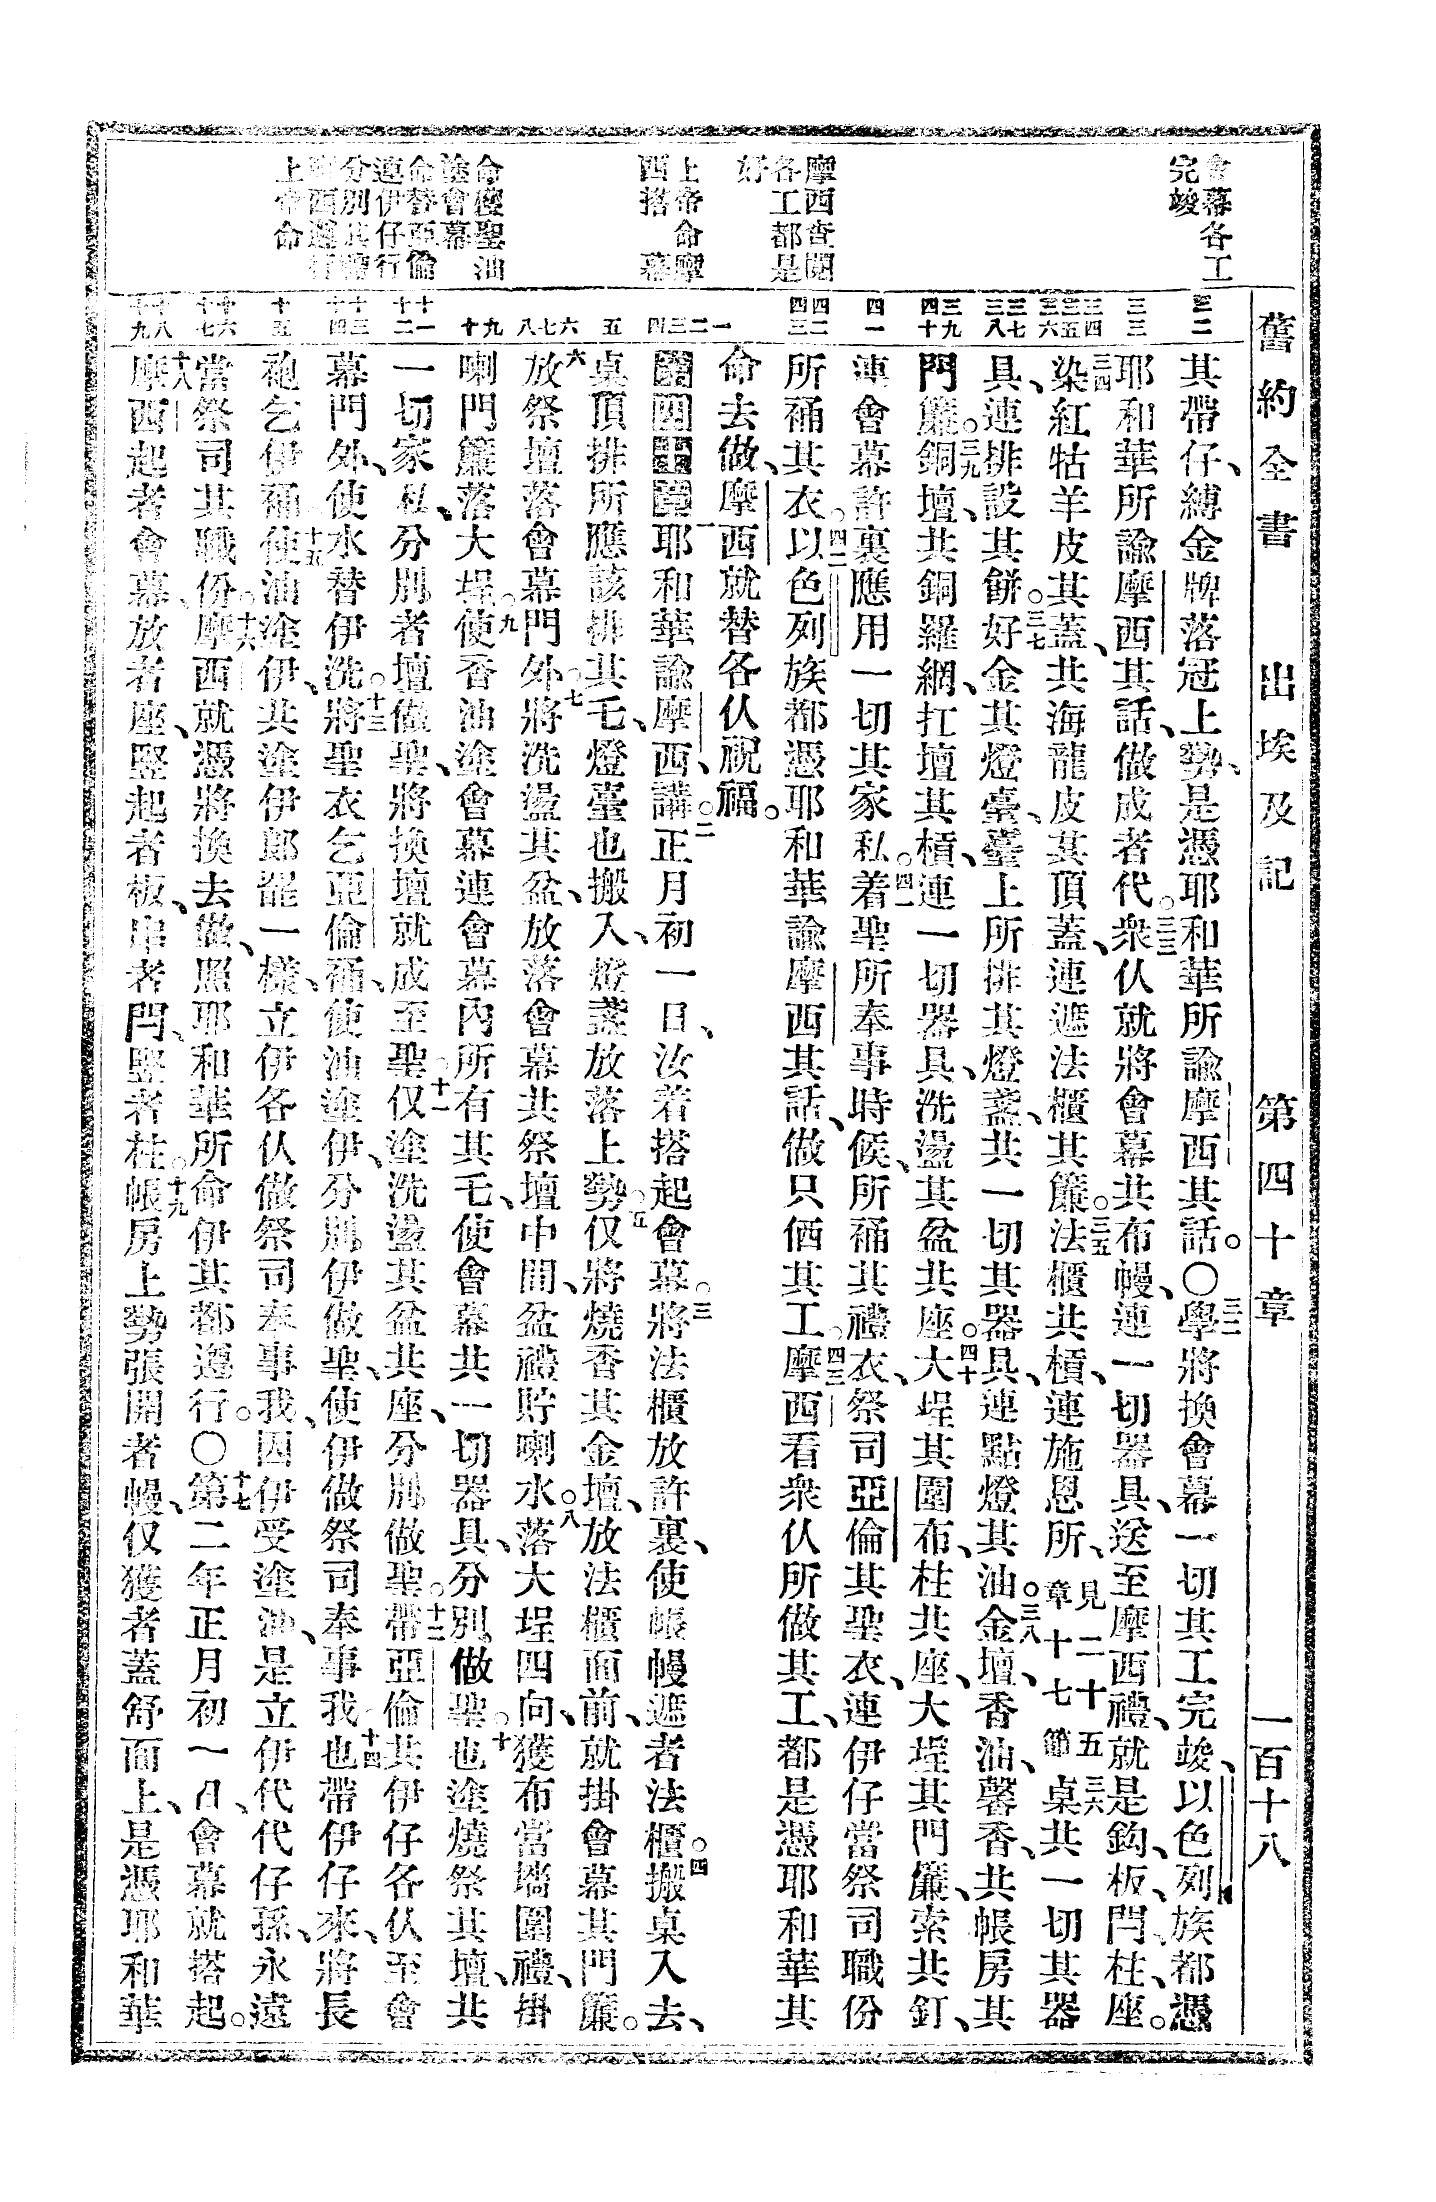 舊約全書 出埃及記 第四十章 一百十八
會幕各工
完竣
摩西查閱
各工都是
好
上帝命摩
西搭 幕
命傻聖油
塗會幕
命替亞倫
連伊仔行
分別其禮
摩西遵行
上帝命
三二
三三
三四 三五 三六
三七 三八
三九 四十
四一
四二 四三
一 二 三 四
五
六 七 八
九 十
十一 十二
十三 十四
十五
十六 十七
十八 十九
其帶仔、縛金牌落冠上勢、是憑耶和華所諭摩西其話。〇三二學將換會幕一切其工完竣、以色列族都憑
耶和華所諭摩西其話、做成者代。三三衆仈就將會幕共布幔、連一切器具、送至摩西禮、就是鈎、板、閂、柱、座。
三四染紅牯羊皮其蓋、共海龍皮其頂蓋、連遮法櫃其簾。三五法櫃共槓、連施恩所、見二十五章十七節三六桌共一切其器
具、連排設其餅。三七好金其燈臺、臺上所排其燈盞、共一切其器具、連點燈其油。三八金壇、香油、馨香、共帳房其
門簾。三九銅壇、共銅羅網、扛壇其槓、連一切器具、洗盪其盆共座。四十大埕其圍布、柱共座、大埕其門簾、索共釘、
連會幕許裏應用一切其家私。四一着聖所奉事時候、所䘄其禮衣、祭司亞倫其聖衣、連伊仔當祭司職份
所䘄其衣。四二以色列族都憑耶和華諭摩西其話、做只価其工。四三摩西看衆仈所做其工、都是憑耶和華其
命去做、摩西就替各仈祝福。
第四十章一耶和華諭摩西、講。二正月初一日、汝着搭起會幕。三將法櫃放許裏、使帳幔遮者法櫃。四搬桌入去、
桌頂排所應該排其乇、燈臺也搬入、燈盞放落上勢。五仅將燒香其金壇、放法櫃面前、就掛會幕其門簾。
六放祭壇落會幕門外。七將洗盪其盆、放落會幕共祭壇中間、盆禮貯喇水。八落大埕四向、獲布當墻圍禮、掛
喇門簾落大埕。九使香油塗會幕連會幕內所有其乇、使會幕共一切器具、分別做聖。十也塗燒祭其壇、共
一切家私、分別者壇做聖、將換壇就成至聖。十一仅塗洗盪其盆共座、分別做聖。十二帶亞倫共伊仔各仈至會
幕門外、使水替伊洗。十三將聖衣乞亞倫䘄、使油塗伊、分別伊做聖、使伊做祭司奉事我。十四也帶伊仔來、將長
袍乞伊䘄。十五使油塗伊、共塗伊郎罷一樣、立伊各仈做祭司奉事我、因伊受塗油、是立伊代代仔孫、永遠
當祭司其職份。十六摩西就憑將換去做、照耶和華所命伊其都遵行。〇十七第二年正月初一日、會幕就搭起。
十八摩西起者會幕、放者座、竪起者板、串者閂、竪者柱。十九帳房上勢張開者幔、仅獲者蓋舒面上、是憑耶和華